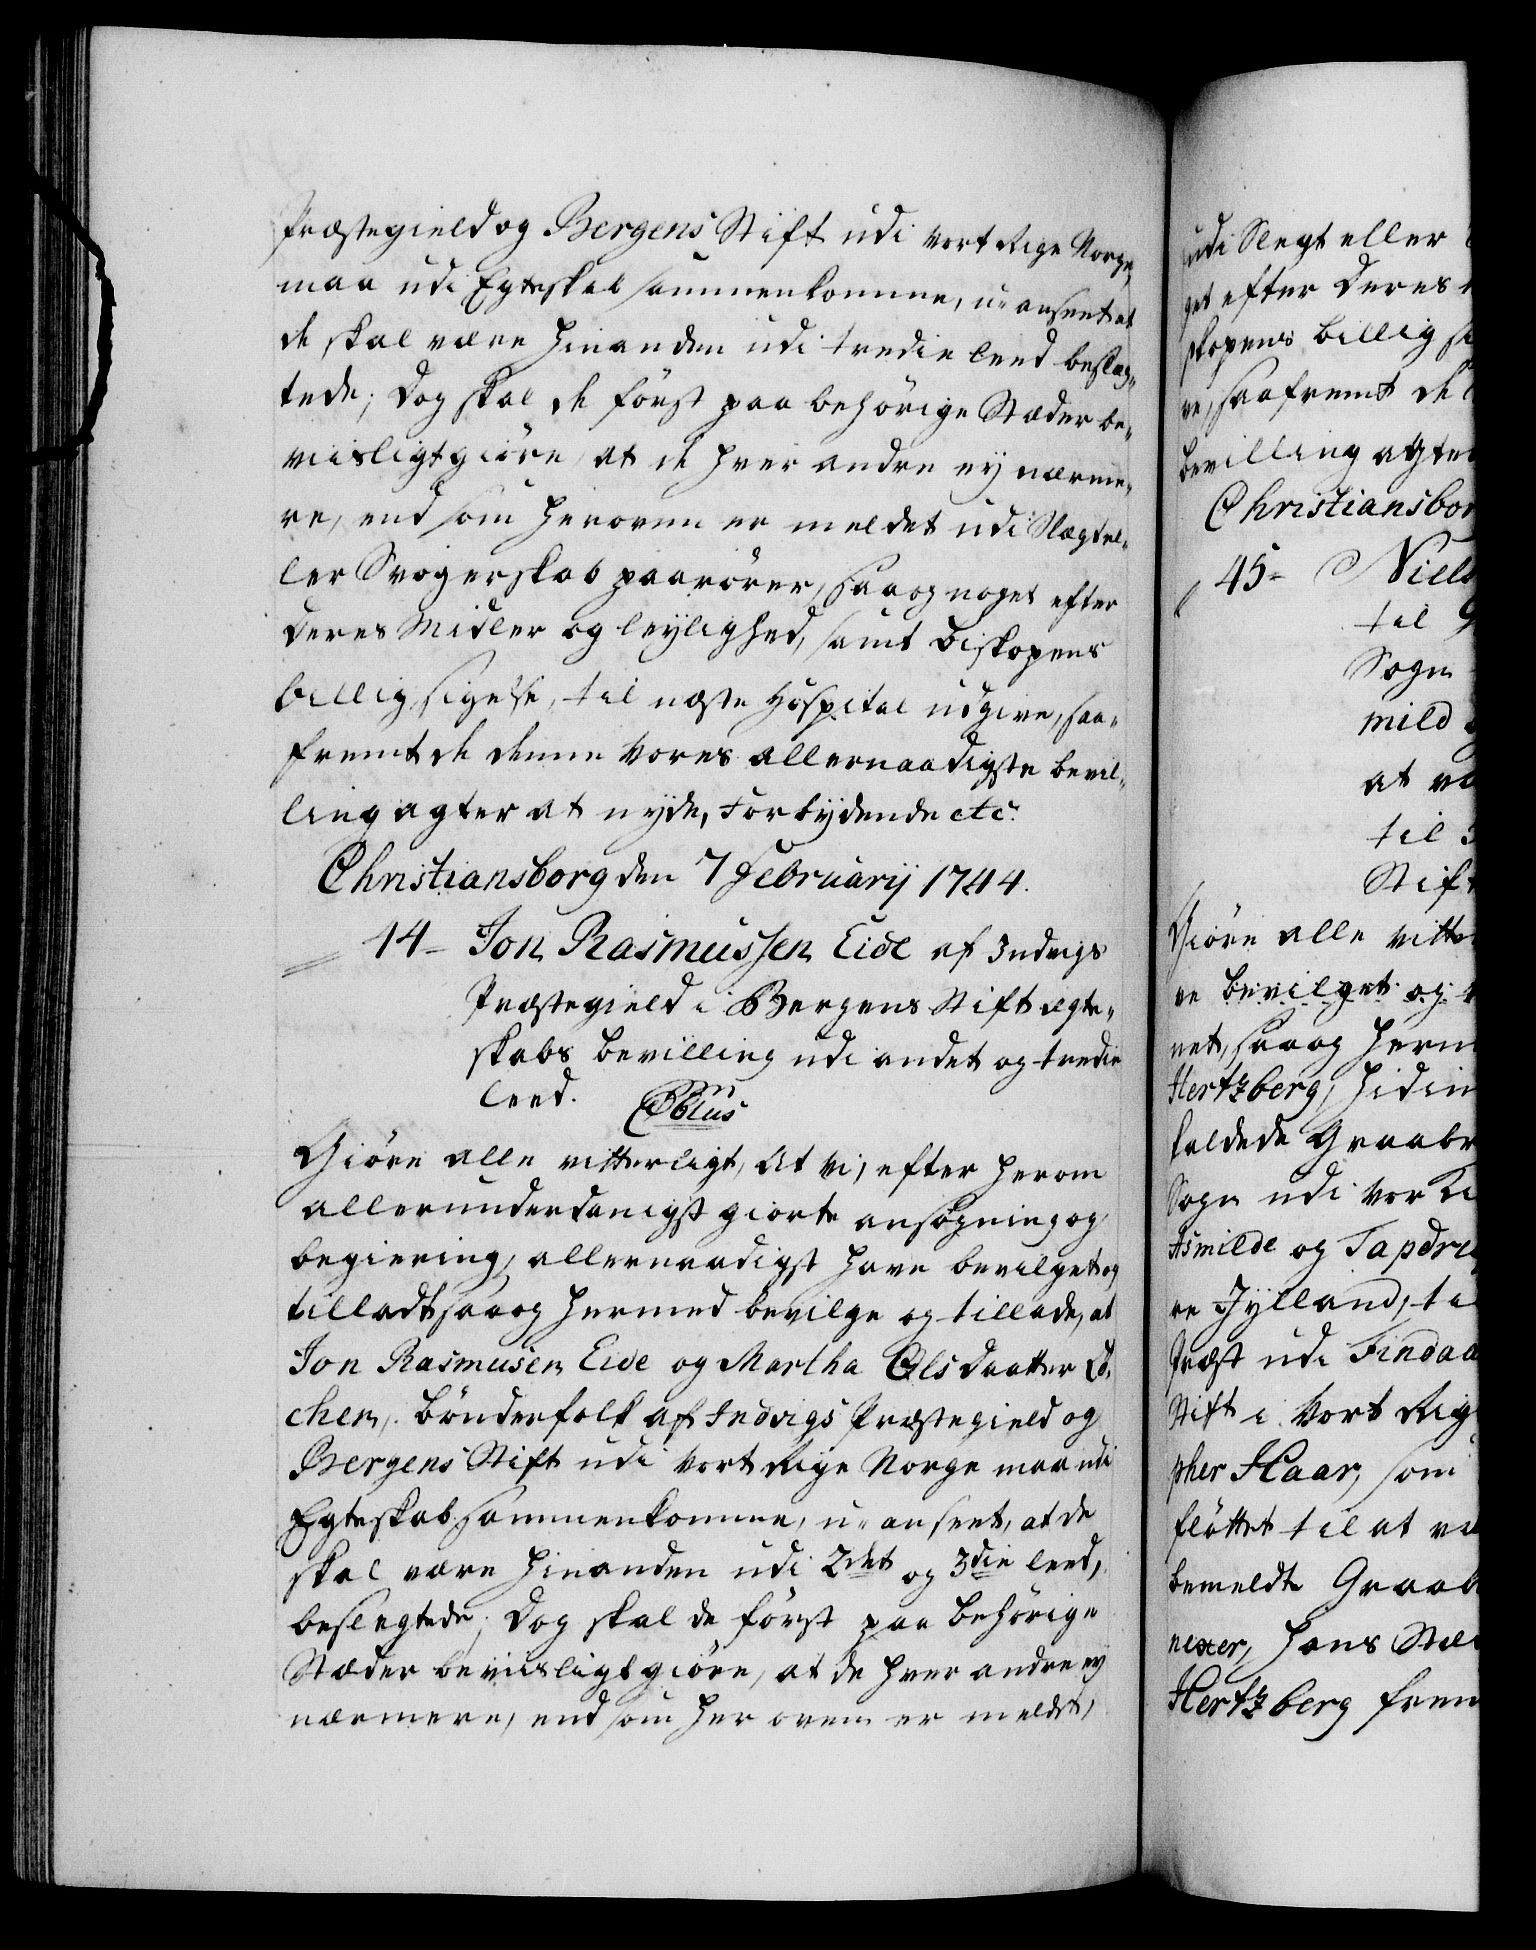 Præstegield og Bergens Stift udi vort Rige Norge,
maa udi Egteskab sammenkomme, u-anseet at
de skal være hinanden udi tredie leed beslæg-
tede; Dog skal de først paa behörige Stæder be-
viisligtgiöre, at de hver andre ey nærme-
re, end som heroven er meldet udi Slægt el-
ler Svogerskab paarörer, saa og noget efter
deres Midler og leylighed, samt Biskopens
billig sigelse, til næste Hospital udgive, saa-
fremt de denne Vores allernaadigste bevil-
ling agter at nyde, Forbydende etc.
Christiansborg den 7 Februarij 1744.
44- Jon Rasmussen Eide af Indvigs
Præstegield i Bergens Stift ægte-
skabs bevilling udi andet og tredie
leed.
Giöre alle vitterligt, at Vi, efter herom
allerunderdanigst giorte ansögning og
begiering, allernaadigst have bevilget og
tilladt, saa og hermed bevilge og tillade, at
Jon Rasmusen Eide og Martha Olsdaatter
chen, bönderfolk af Indvigs Præstegield og
Bergens Stift udi Vort Rige Norge maa udi
Egteskab sammenkomme, u-anseet, at de
skal være hinanden udi 2det og 3die leed,
beslegtede; Dog skal de först paa behörige
Stæder beviisligtgiöre, at de hver andre ey
nærmere, end som her oven er meldt,
udi Slegt eller
get efter deres
skopens billig si
re, saafremt de
bevilling agter
Christiansbor
45- Niels
til
Sogn
mild
at væ
til
Stift
Giöre alle vitte
re bevilget og
net, saa og herm
Hertzberg, hidin
kaldede Graabr
Sogn udi vor
Asmilde og Tapdru
re Jylland, ti
Præst udi Findaa
Stift i Vort Rig
pher Haar, som
flöttet til at væ
bemeldte Graab
nexer, hans Stæ
Hertzberg frem